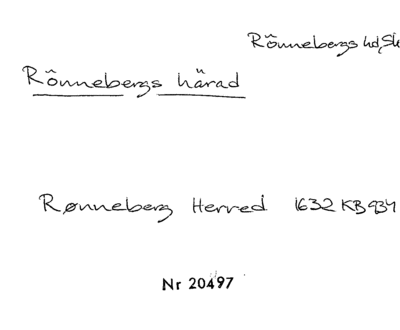 Rönnebergs hd, Sk
Rönnebergs härad
Rønneberg Herred 1632 KB 934
Nr 20497